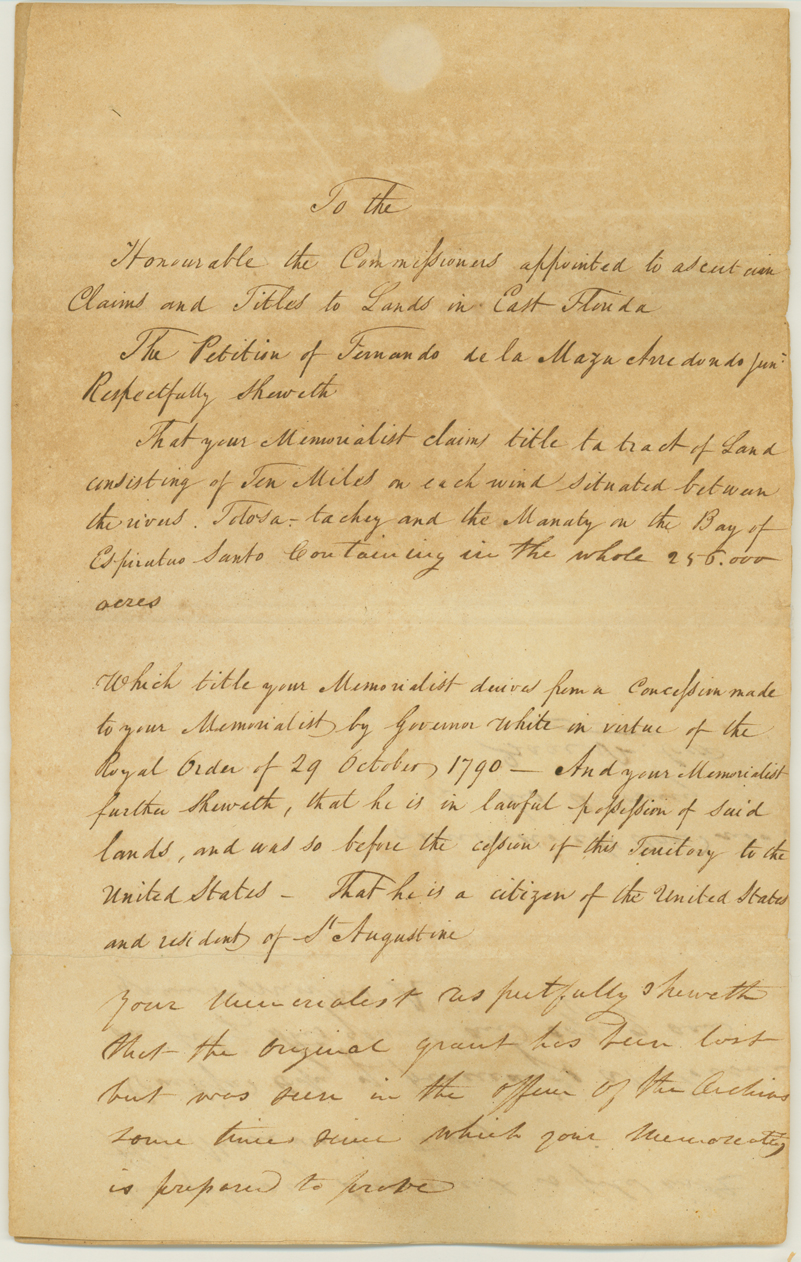 To the
Honourable the Commissioners appointed to ascertain
Claims and Titles to Lands in East Florida
The Petition of Fernando de la Maza Arredondo Junr
Respectfully Sheweth
That your Memorialist claims title to a tract of Land
consisting of Ten Miles on each wind situated between
the rivers Totosa-tachey and the Manaty on the Bay of
Espirituo Santo Containing in the whole 256.000
acres
Which title your Memorialist derives from a Concession made
to your Memorialist by Governor White in virtue of the
Royal Order of 29 October 1790 — And your Memorialist
further Sheweth, that he is in lawful possession of said
lands, and was so before the cession of this Territory to the
United States — That he is a citizen of the United States
and resident of St Augustine
Your Memorialist respectfully sheweth
that the original grant has been lost
but was seen in the office of the Archives
some time since which your Memorialist
is prepared to prove